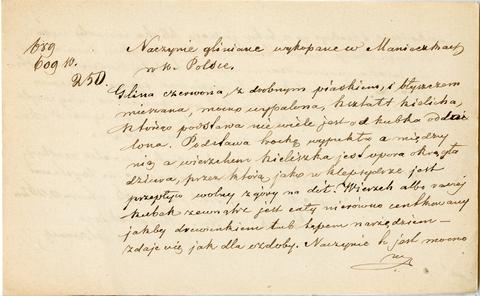 Naczynie gliniane wykopane w Manieczkach
w W. Polsce.
250.
Glina czerwona, z drobnym piaskiem, z błyszczem
mieszana, mocno wypalona, kształt kielicha,
którego podstawa nie wiele jest od kubka oddzie
lona. Podstawa trochę wypukła a między
nią a wierzchem kieliszka jest spora okrągła
dziura, przez którą jako w klepsydrze jest
przepływ wolny z góry na dół. Wierzch albo raczej
kubek zewnątrz jest cały nierówno centkowany
jakby drewienkiem lub tępem narzędziem—
zdaje się jak dla ozdoby. Naczynie to jest mocno